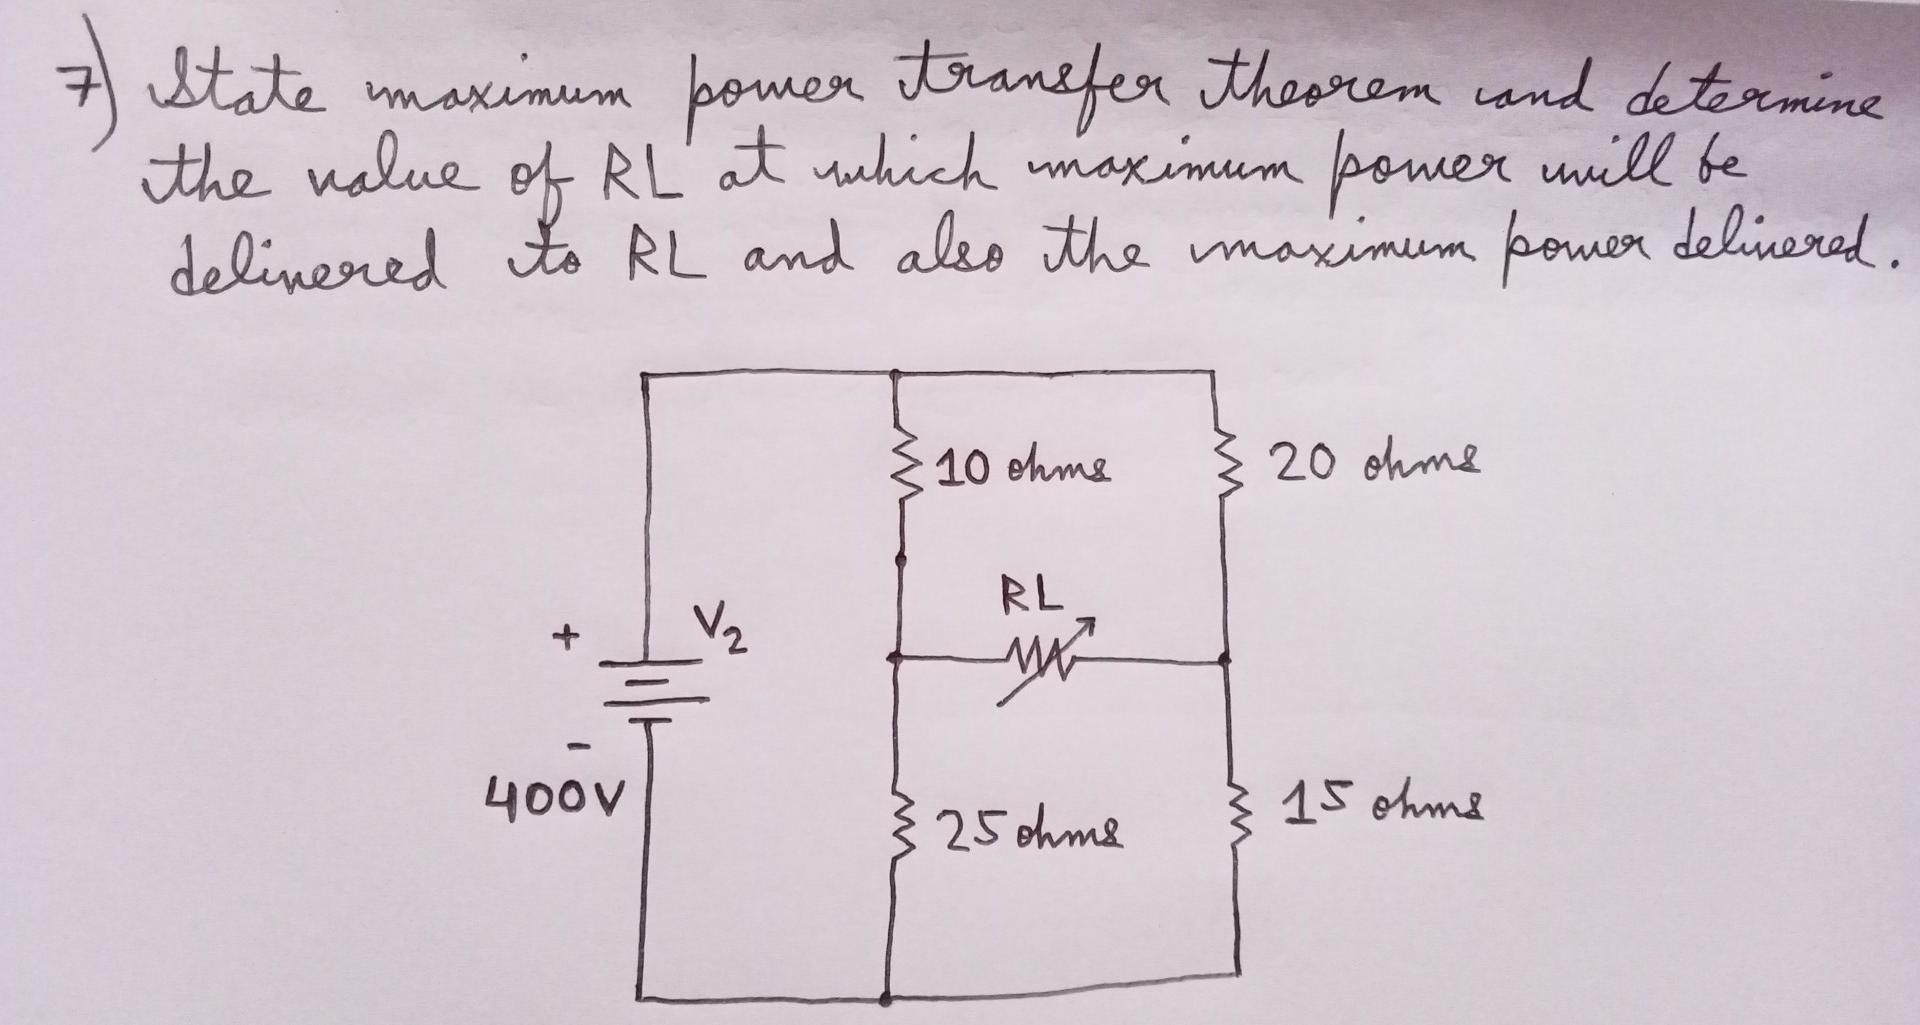 7) State maximum power transfer theorem and determine
the value of RL at which maximum power will be
delivered to RL and also the maximum power delivered.
10 ohms
20 ohms
RL
+
V2
-
400V
25 ohms
15 ohms